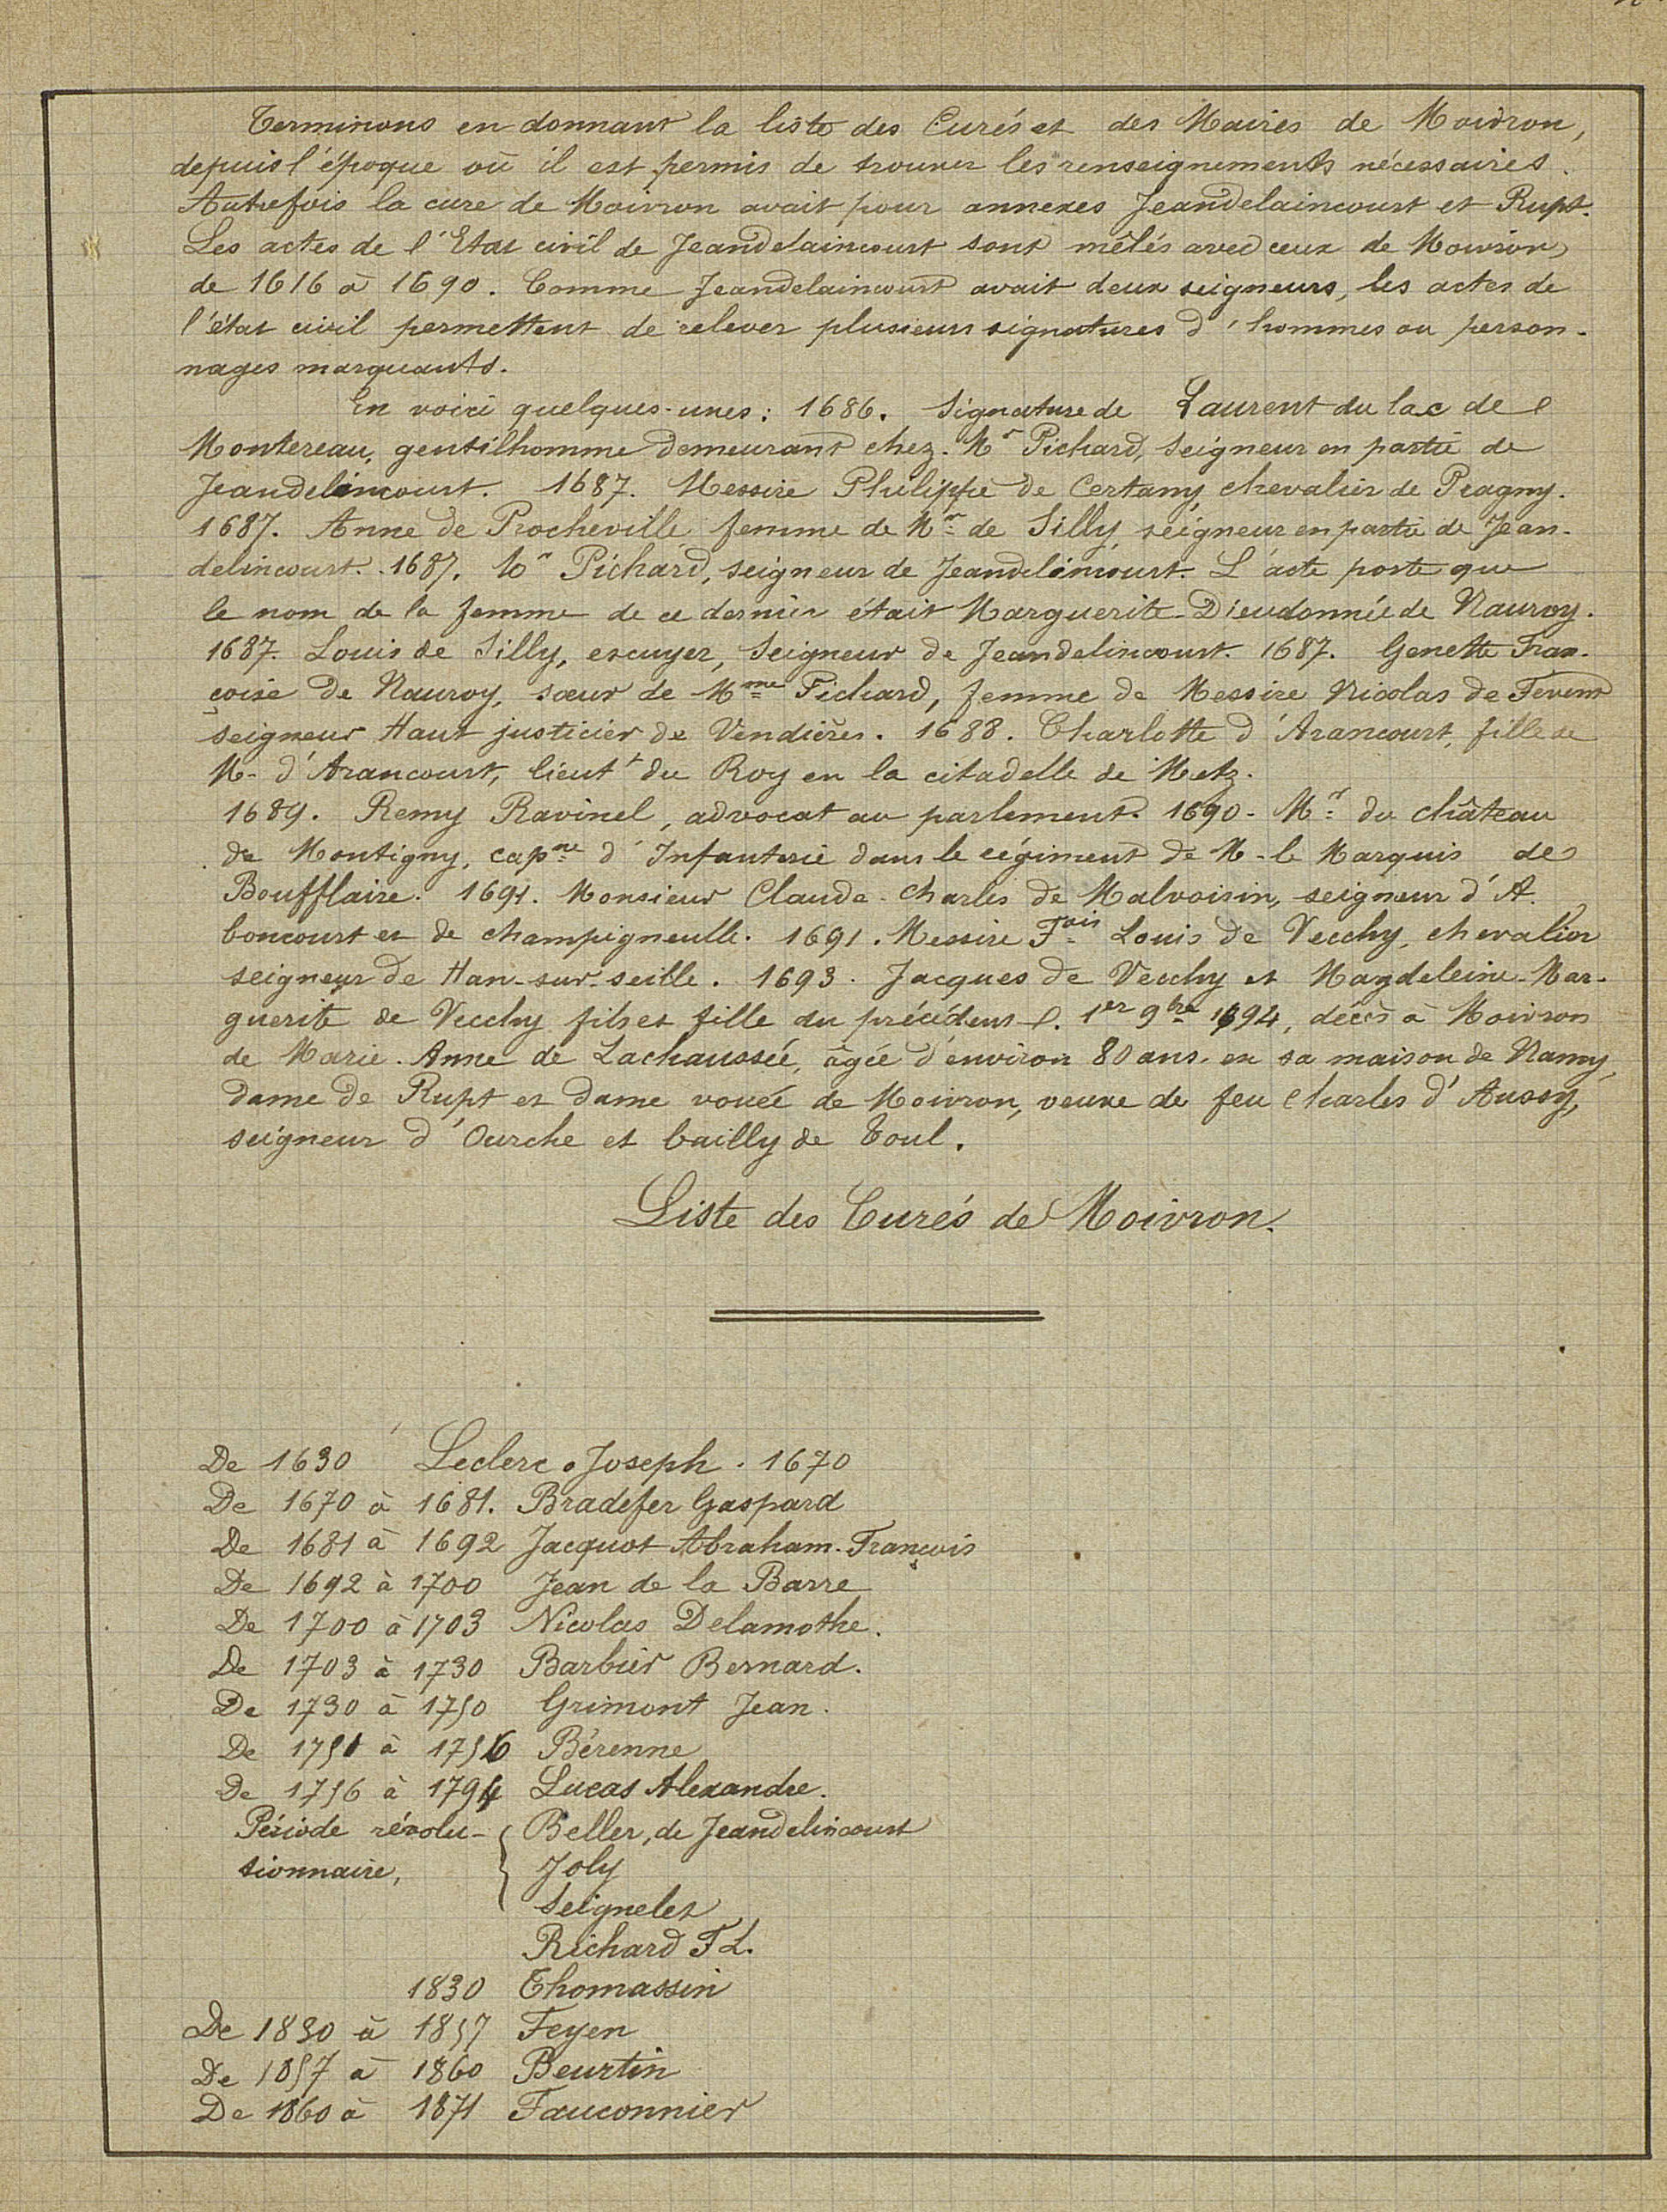 Terminons en donnant la liste des Curés et des Maires de Moivron,
depuis l'époque où il est permis de trouver les renseignements nécessaires.
Autrefois la cure de Moivron avait pour annexes Jeandelaincourt et Rupt.
Les actes de l'Etat civil de Jeandelaincourt sont mêlés avec ceux de Moivron,
de 1616 à 1690. Comme Jeandelaincourt avait deux seigneurs, les actes de
l'état civil permettent de relever plusieurs signatures d'hommes ou person-
nages marquants.
En voici quelques-unes : 1686. Signature de Laurent du lac de
Montereau, gentilhomme demeurant chez Mr Pichard, seigneur en partie de
Jeandelincourt. 1687. Messire Philippe de Certany, chevalier de Pragny.
1687. Anne de Procheville femme de Mr de Silly, seigneur en partie de Jean-
delincourt. 1687. Mr Pichard, seigneur de Jeandelincourt. L'acte porte que
le nom de la femme de ce dernier était Marguerite-Dieudonnée de Nauroy.
1687. Louis de Silly, escuyer, Seigneur de Jeandelincourt. 1687. Genette Fran-
çoise de Nauroy, sœur de Mme Pichard, femme de Messire Nicolas de
seigneur Haut justicier de Vendières. 1688. Charlotte d'Arancourt, fille de
M- d'Arancourt, lieutt du Roy en la citadelle de Metz.
1689. Remy Ravinel, advocat au parlement. 1690- Mr du château
de Montigny, capne d'Infanterie dans le régiment de M- le Marquis de
Boufflaire. 1691. Monsieur Claude-Charles de Malvoisin, seigneur d'A.
boncourt et de champigneulle. 1691. Messire Fois Louis de Vecchy, chevalier
seigneur de Han-sur-seille. 1693. Jacques de Vecchy et Magdeleine-Mar-
guerite de Vecchy fils et fille du précédent. 1er 9bre 1694, décès à Moivron
de Marie-Anne de Lachaussée, âgée d'environ 80 ans, en sa maison de
dame de Rupt et dame vouée de Moivron, veuve de feu Charles d'Aussy,
seigneur d'Ourche et bailly de Toul.
Liste des Curés de Moivron.
De 1630 Leclerc Joseph. 1670
De 1670 à 1681. Bradefer Gaspard
De 1681 à 1692 Jacquot Abraham-François
De 1692 à 1700 Jean de la Barre
De 1700 à 1703 Nicolas Delamothe.
De 1703 à 1730 Barbier Bernard.
De 1730 à 1750 Grimont Jean.
De 1751 à 1756 Bérenne
De 1756 à 1794 Lucas Alexandre.
Période révolu- { Beller, de Jeandelincourt
tionnaire, Joly
Seignelet
Richard F L.
1830 Thomassin
De 1830 à 1857 Feyen
De 1857 à 1860 Beurtin
De 1860 à 1871 Fauconnier